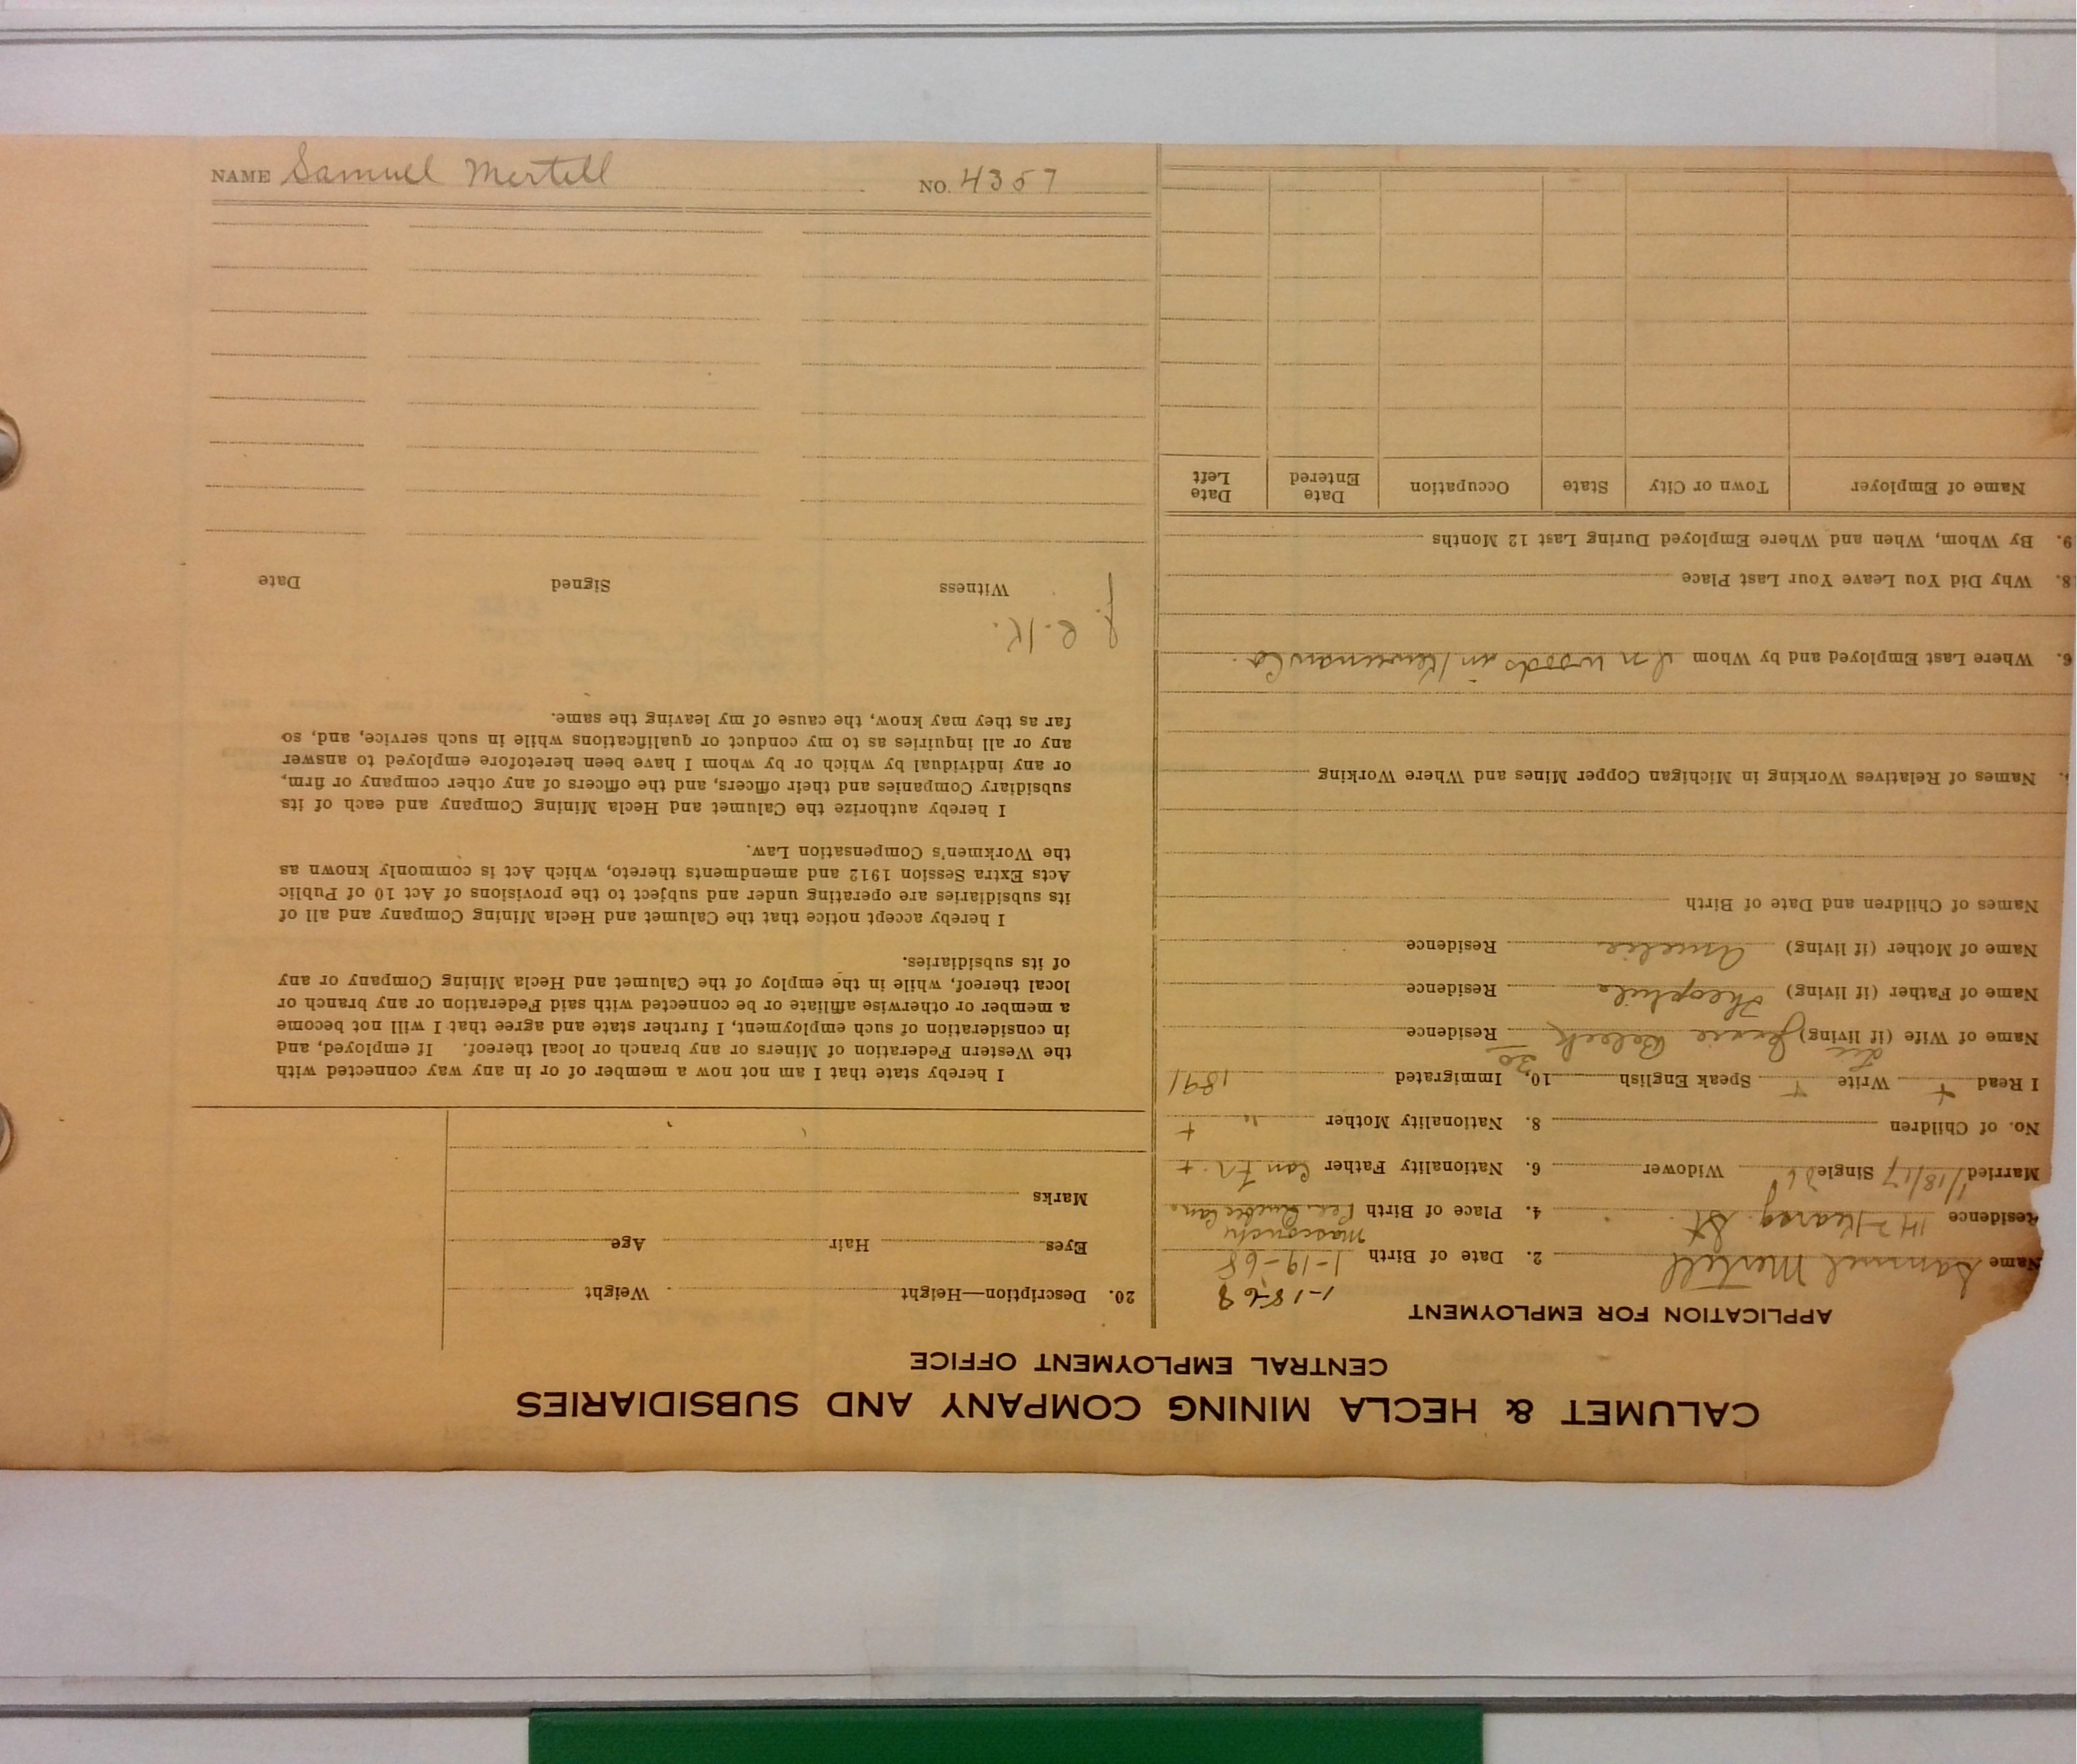 NAME Samuel Mertell NO. 4357
CALUMET & HECLA MINING COMPANY AND SUBSIDIARIES
CENTRAL EMPLOYMENT OFFICE
APPLICATION FOR EMPLOYMENT
1-18-68
Name Samuel Mertell 2. Date of Birth 1-19-68
Residence St. 4. Place of Birth
Married 1/18/17 Single Widower 6. Nationality Father Can Fr. +
No. of Children 8. Nationality Mother " +
I Read + Write + Speak English 10. Immigrated 1891
Name of Wife (if living) Jennie Residence
Name of Father (if living) Theophile Residence
Name of Mother (if living) Amelia Residence
Names of Children and Date of Birth
Names of Relatives Working in Michigan Copper Mines and Where Working
6. Where Last Employed and by Whom In woods in Keweenaw Co.
8. Why Did You Leave Your Last Place
9. By Whom, When and Where Employed During Last 12 Months
Name of Employer Town or City State Occupation Date Entered Date Left
20. Description—Height Weight
Eyes Hair Age
Marks
I hereby state that I am not now a member of or in any way connected with
the Western Federation of Miners or any branch or local thereof. If employed, and
in consideration of such employment, I further state and agree that I will not become
a member or otherwise affiliate or be connected with said Federation or any branch or
local thereof, while in the employ of the Calumet and Hecla Mining Company or any
of its subsidiaries.
I hereby accept notice that the Calumet and Hecla Mining Company and all of
its subsidiaries are operating under and subject to the provisions of Act 10 of Public
Acts Extra Session 1912 and amendments thereto, which Act is commonly known as
the Workmen's Compensation Law.
I hereby authorize the Calumet and Hecla Mining Company and each of its
subsidiary Companies and their officers, and the officers of any other company or firm,
or any individual by which or by whom I have been heretofore employed to answer
any or all inquiries as to my conduct or qualifications while in such service, and, so
far as they may know, the cause of my leaving the same.
Witness Signed Date